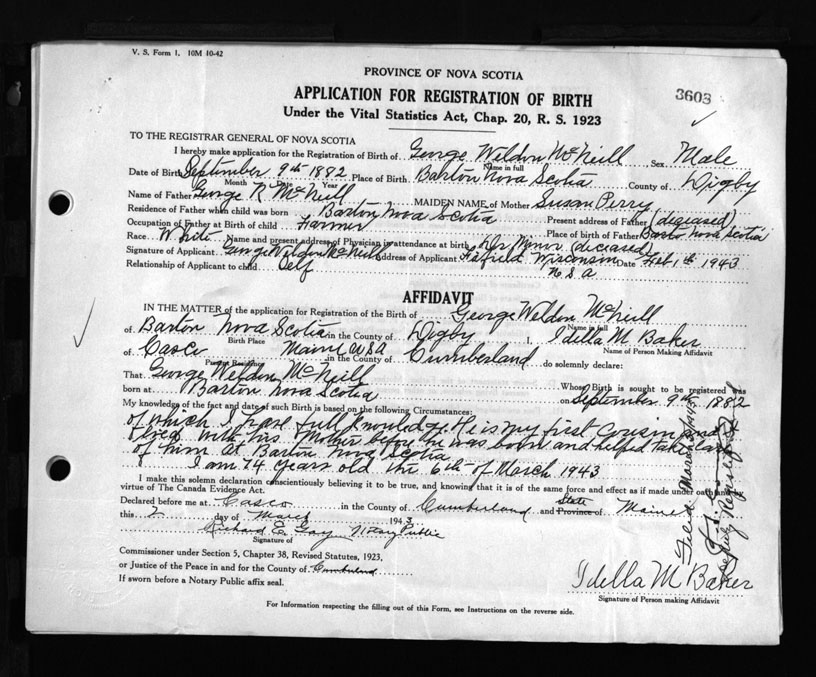 V. S. Form 1. 10M 10-42
PROVINCE OF NOVA SCOTIA
APPLICATION FOR REGISTRATION OF BIRTH
3603
Under the Vital Statistics Act, Chap. 20, R. S. 1923
TO THE REGISTRAR GENERAL OF NOVA SCOTIA
I hereby make application for the Registration of Birth of George Weldon McNeill Sex Male
Name in full
Date of Birth September 9th 1882 Place of Birth Barton Nova Scotia County of Digby
Month Date Year
Name of Father George R McNeill MAIDEN NAME of Mother Susan Perry
Residence of Father when child was born Barton Nova Scotia Present address of Father (deceased)
Occupation of Father at Birth of child Farmer Place of birth of Father Barton Nova Scotia
Race White Name and present address of Physician in attendance at birth Dr Minor (deceased)
Signature of Applicant George Weldon McNeill Address of Applicant Wisconsin Date Feb 1th 1943
Relationship of Applicant to child Self U.S.A
AFFIDAVIT
IN THE MATTER of the application for Registration of the Birth of George Weldon McNeill
Name in full
of Barton Nova Scotia in the County of Digby I, Idella M Baker
Birth Place Name of Person Making Affidavit
of Casco Maine USA in the County of Cumberland do solemnly declare:
Present Residence
That George Weldon McNeill Whose Birth is sought to be registered was
born at Barton Nova Scotia on September 9th 1882
My knowledge of the fact and date of such Birth is based on the following Circumstances:
of which I have full knowledge. He is my first Cousin and
I lived with his Mother before he was born and helped take care
of him at Barton Nova Scotia
I am 74 years old the 6th of March 1943
I make this solemn declaration conscientiously believing it to be true, and knowing that it is of the same force and effect as if made under oath and
virtue of The Canada Evidence Act.
Declared before me at Casco in the County of Cumberland and State Province of Maine
this 2 day of March 1943
Richard E. Gay Notary Public
Signature of
Commissioner under Section 5, Chapter 38, Revised Statutes, 1923,
or Justice of the Peace in and for the County of Cumberland
If sworn before a Notary Public affix seal.
Idella M Baker
Signature of Person making Affidavit
For Information respecting the filling out of this Form, see Instructions on the reverse side.
Filed March
Deputy Registrar